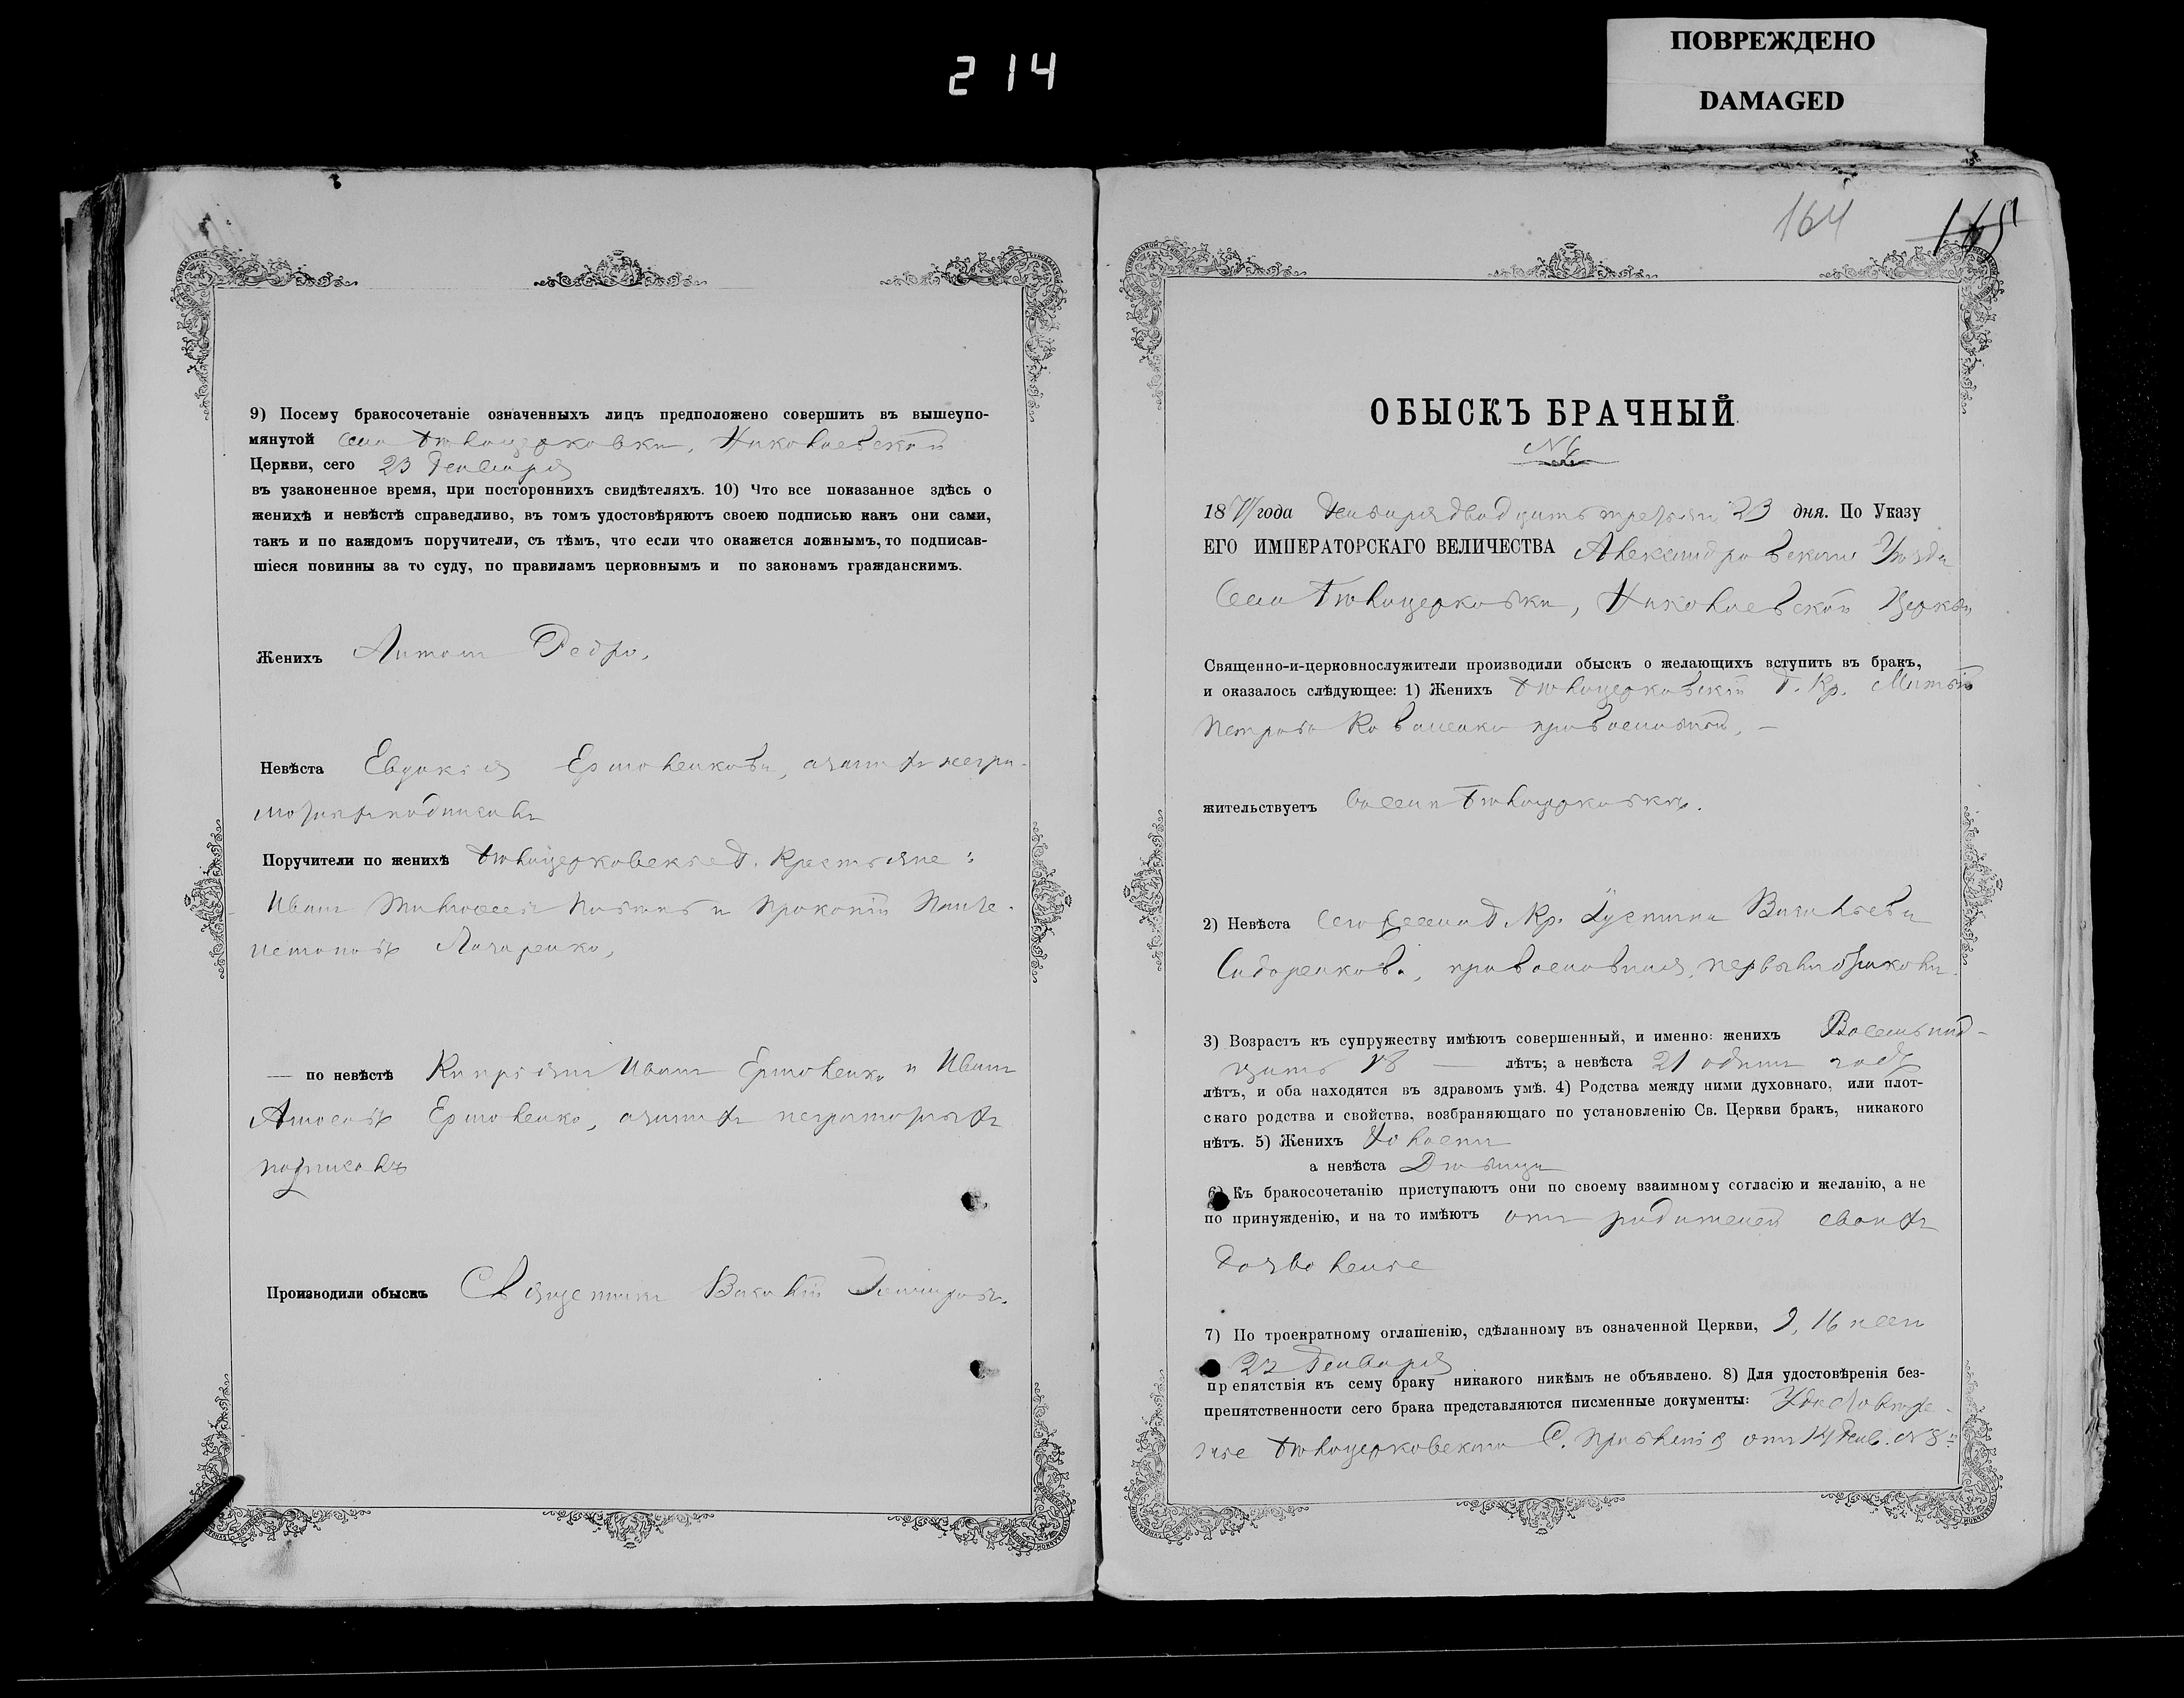 214
ПОВРЕЖДЕНО
DAMAGED
9) Посему бракосочетаніе означенныхъ лицъ предположено совершить въ вышеупо-
мянутой села Бѣлоцерковки, Николаевской
Церкви, сего 23 Генваря
въ узаконенное время, при постороннихъ свидѣтеляхъ. 10) Что все показанное здѣсь о
женихѣ и невѣстѣ справедливо, въ томъ удостовѣряютъ своею подписью какъ они сами,
такъ и по каждомъ поручители, съ тѣмъ, что если что окажется ложнымъ, то подписав-
шіеся повинны за то суду, по правиламъ церковнымъ и по законамъ гражданскимъ.
Женихъ Антонъ
Невѣста Евдокія Ермоленкова, а за нихъ негра-
мотныхъ подписалъ
Поручители по женихѣ Бѣлоцерковскіе Г. Крестьяне:
Иванъ и Прокопій Панте-
Лазаренко,
— по невѣстѣ Кипріянъ Иванъ Ермоленко и Иванъ
Ермоленко, а за нихъ неграмотныхъ
подписалъ
Производили обыскъ Священникъ Василій
164
165
ОБЫСКЪ БРАЧНЫЙ
№ 6
18 года Генваря двадцать третьяго 23 дня. По Указу
ЕГО ИМПЕРАТОРСКАГО ВЕЛИЧЕСТВА Александровскаго Уѣзда
Села Бѣлоцерковки, Николаевской Церкви
Священно-и-церковнослужители производили обыскъ о желающихъ вступить въ бракъ,
и оказалось слѣдующее: 1) Женихъ Бѣлоцерковскій Г. Кр. Матвій
Петровъ Коваленко православный, —
жительствуетъ въ селѣ Бѣлоцерковкѣ.
2) Невѣста сего села Г. Кр. Іустина Васильева
Сидоренкова, православная, первымъ бракомъ
3) Возрастъ къ супружеству имѣютъ совершенный, и именно: женихъ Восемнад-
цать 18 — лѣтъ; а невѣста 21 одинъ годъ
лѣтъ, и оба находятся въ здравомъ умѣ. 4) Родства между ними духовнаго, или плот-
скаго родства и свойства, возбраняющаго по установленію Св. Церкви бракъ, никакого
нѣтъ. 5) Женихъ Холостъ
а невѣста Дѣвица
6) Къ бракосочетанію приступаютъ они по своему взаимному согласію и желанію, а не
по принужденію, и на то имѣютъ отъ родителей своихъ
дозволеніе
7) По троекратному оглашенію, сдѣланному въ означенной Церкви, 9, 16
22 Генваря
препятствія къ сему браку никакого никѣмъ не объявлено. 8) Для удостовѣренія без-
препятственности сего брака представляются писменные документы: Удостовѣре-
ніе Бѣлоцерковскаго С. Правленія отъ 14 Генв. № 8